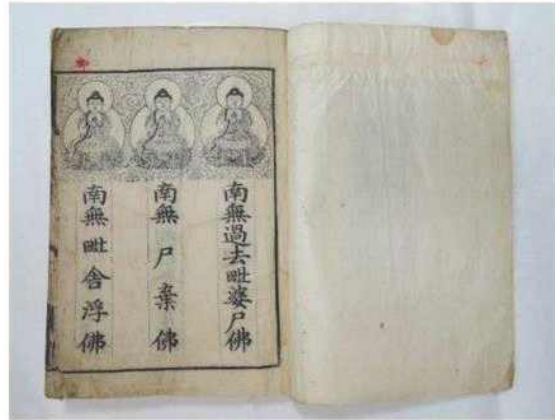 南無過去毗婆尸佛
南無尸棄佛
南無毗舍浮佛